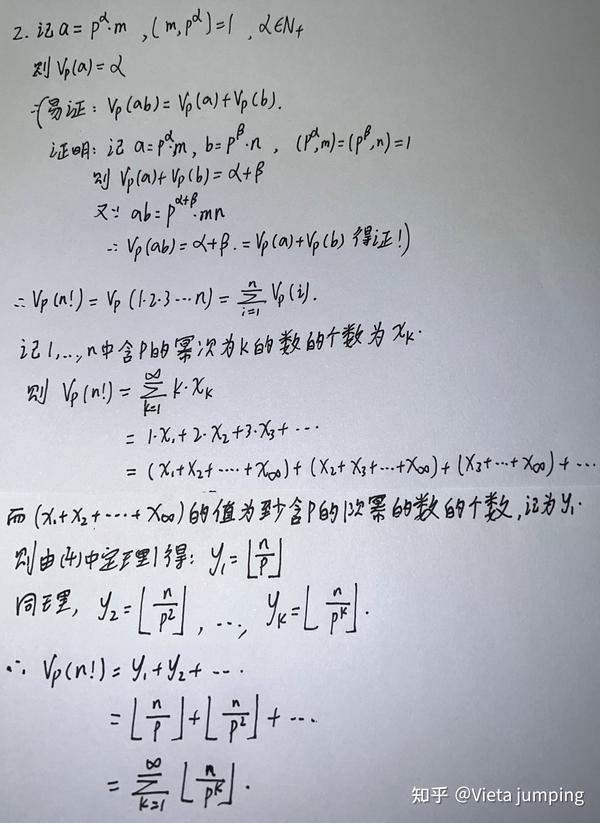 2. 记 a = p^α·m , (m, p^α)=1 , α∈N₊
则 Vp(a) = α
(易证: Vp(ab) = Vp(a)+Vp(b).
证明: 记 a=p^α·m, b=p^β·n , (p^α,m)=(p^β,n)=1
则 Vp(a)+Vp(b)=α+β
又∵ ab=p^(α+β)·mn
∴ Vp(ab)=α+β.=Vp(a)+Vp(b) 得证!)
∴ Vp(n!) = Vp(1·2·3···n) = ∑_{i=1}^{n} Vp(i).
记1,...,n中含P的幂次为k的数的个数为 x_k.
则 Vp(n!) = ∑_{k=1}^{∞} k·x_k
= 1·x₁+2·x₂+3·x₃+···
= (x₁+x₂+····+x_∞)+(x₂+x₃+···+x_∞)+(x₃+···+x_∞)+···
而 (x₁+x₂+···+x_∞)的值为至少含P的1次幂的数的个数,记为y₁.
则由(4)中定理1得: y₁=⌊n/p⌋
同理, y₂=⌊n/p²⌋ , ···, y_k=⌊n/p^k⌋.
∴ Vp(n!) = y₁+y₂+···
= ⌊n/p⌋+⌊n/p²⌋+···
= ∑_{k=1}^{∞} ⌊n/p^k⌋.
知乎 @Vieta jumping